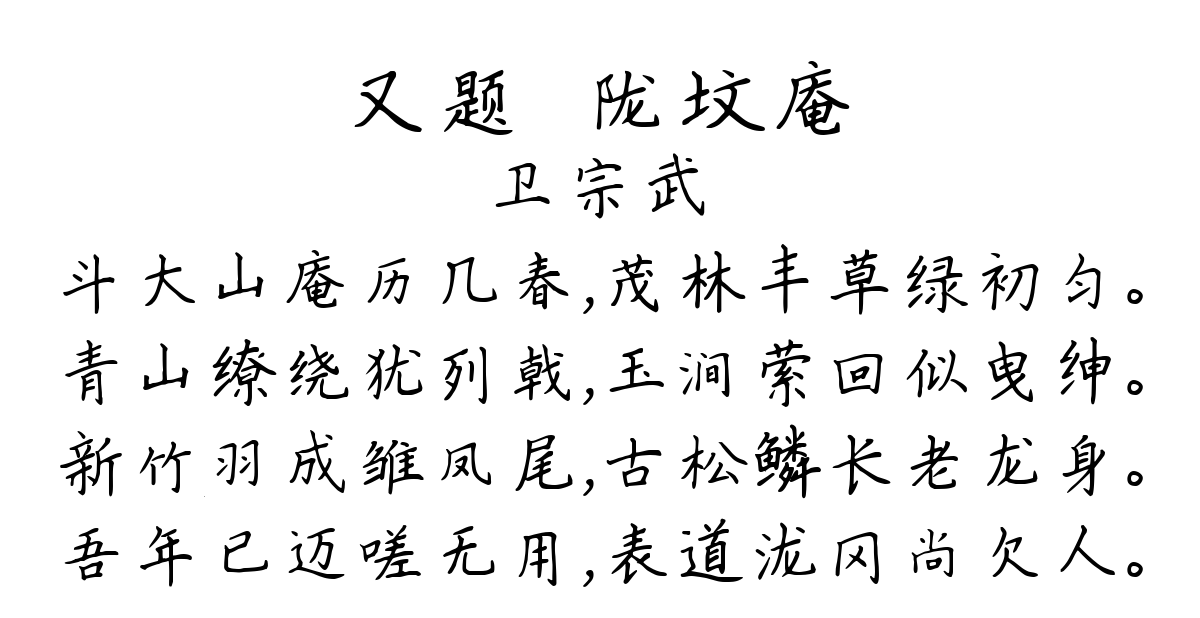 又题 陇坟庵
卫宗武
斗大山庵历几春,茂林丰草绿初匀。
青山缭绕犹列戟,玉涧萦回似曳绅。
新竹羽成雏凤尾,古松鳞长老龙身。
吾年已迈嗟无用,表道泷冈尚欠人。